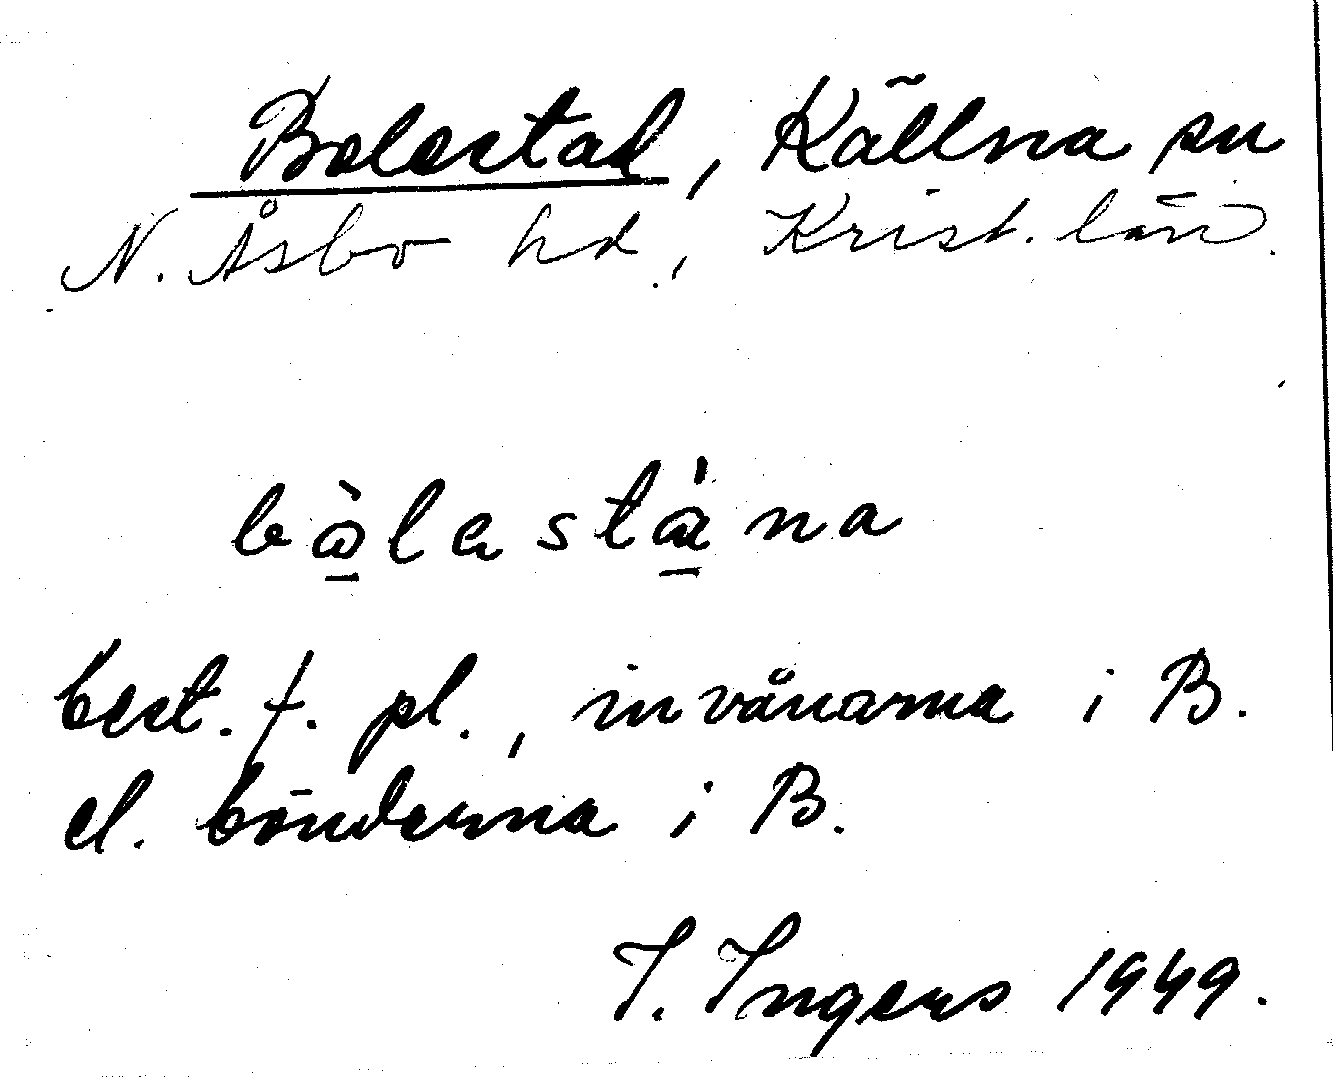 Bolestad, Källna sn
N. Åsbo hd., Krist. län.
bålastäna
best. f. pl., invånarna i B.
el. bönderna i B.
I. Ingers 1949.